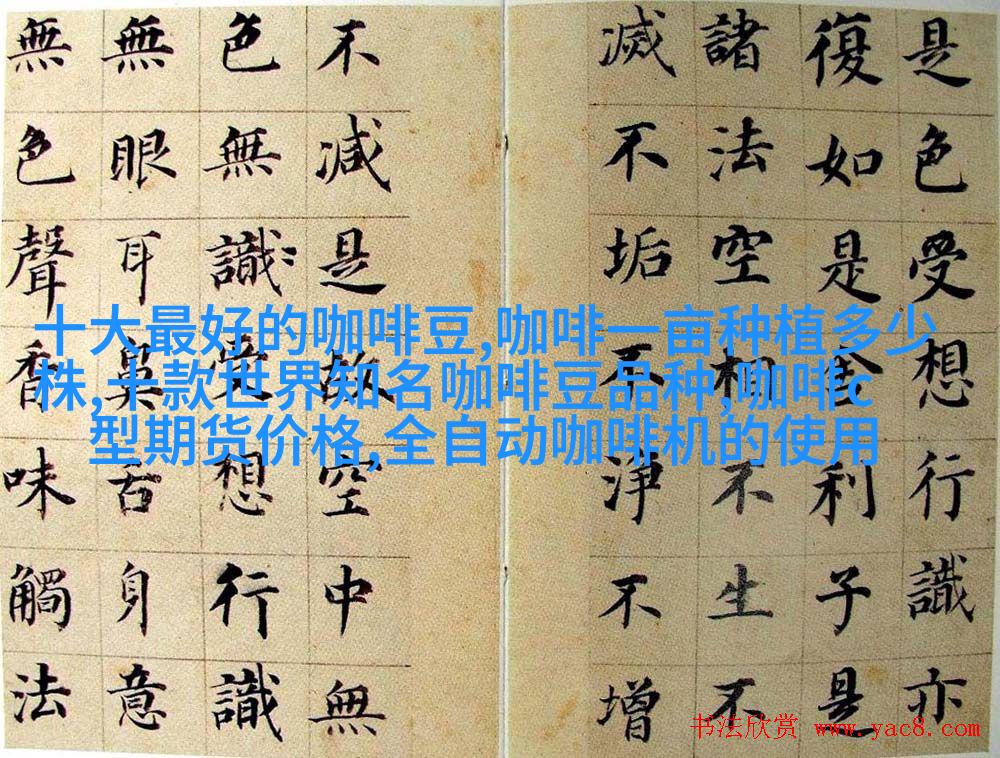 是色受想行識亦
復如是舍利子是
諸法空相不生不
滅不垢不淨不增
不減是故空中無
色無識受想行識
無眼耳鼻舌身意
無色聲香味觸法
十大最好的咖啡豆,咖啡一亩种植多少
株,十款世界知名咖啡豆品种,咖啡c
型期货价格,全自动咖啡机的使用
书法欣赏 www.yac8.com